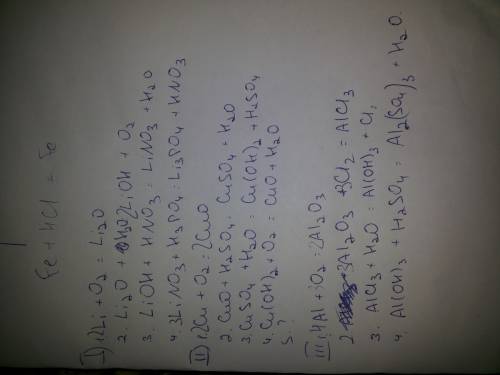 Fe + HCl = Fe
I) 1. 2Li + O2 = Li2O
2. Li2O + H2O = 2LiOH + O2
3. LiOH + HNO3 = LiNO3 + H2O
4. 3LiNO3 + H3PO4 = Li3PO4 + HNO3
II) 1. 2Cu + O2 = 2CuO
2. CuO + H2SO4 = CuSO4 + H2O
3. CuSO4 + H2O = Cu(OH)2 + H2SO4
4. Cu(OH)2 + O2 = CuO + H2O
5. ?
III. 1. 4Al + 3O2 = 2Al2O3
2. 3Al2O3 + 3Cl2 = AlCl3
3. AlCl3 + H2O = Al(OH)3 + Cl2
4. Al(OH)3 + H2SO4 = Al2(SO4)3 + H2O.